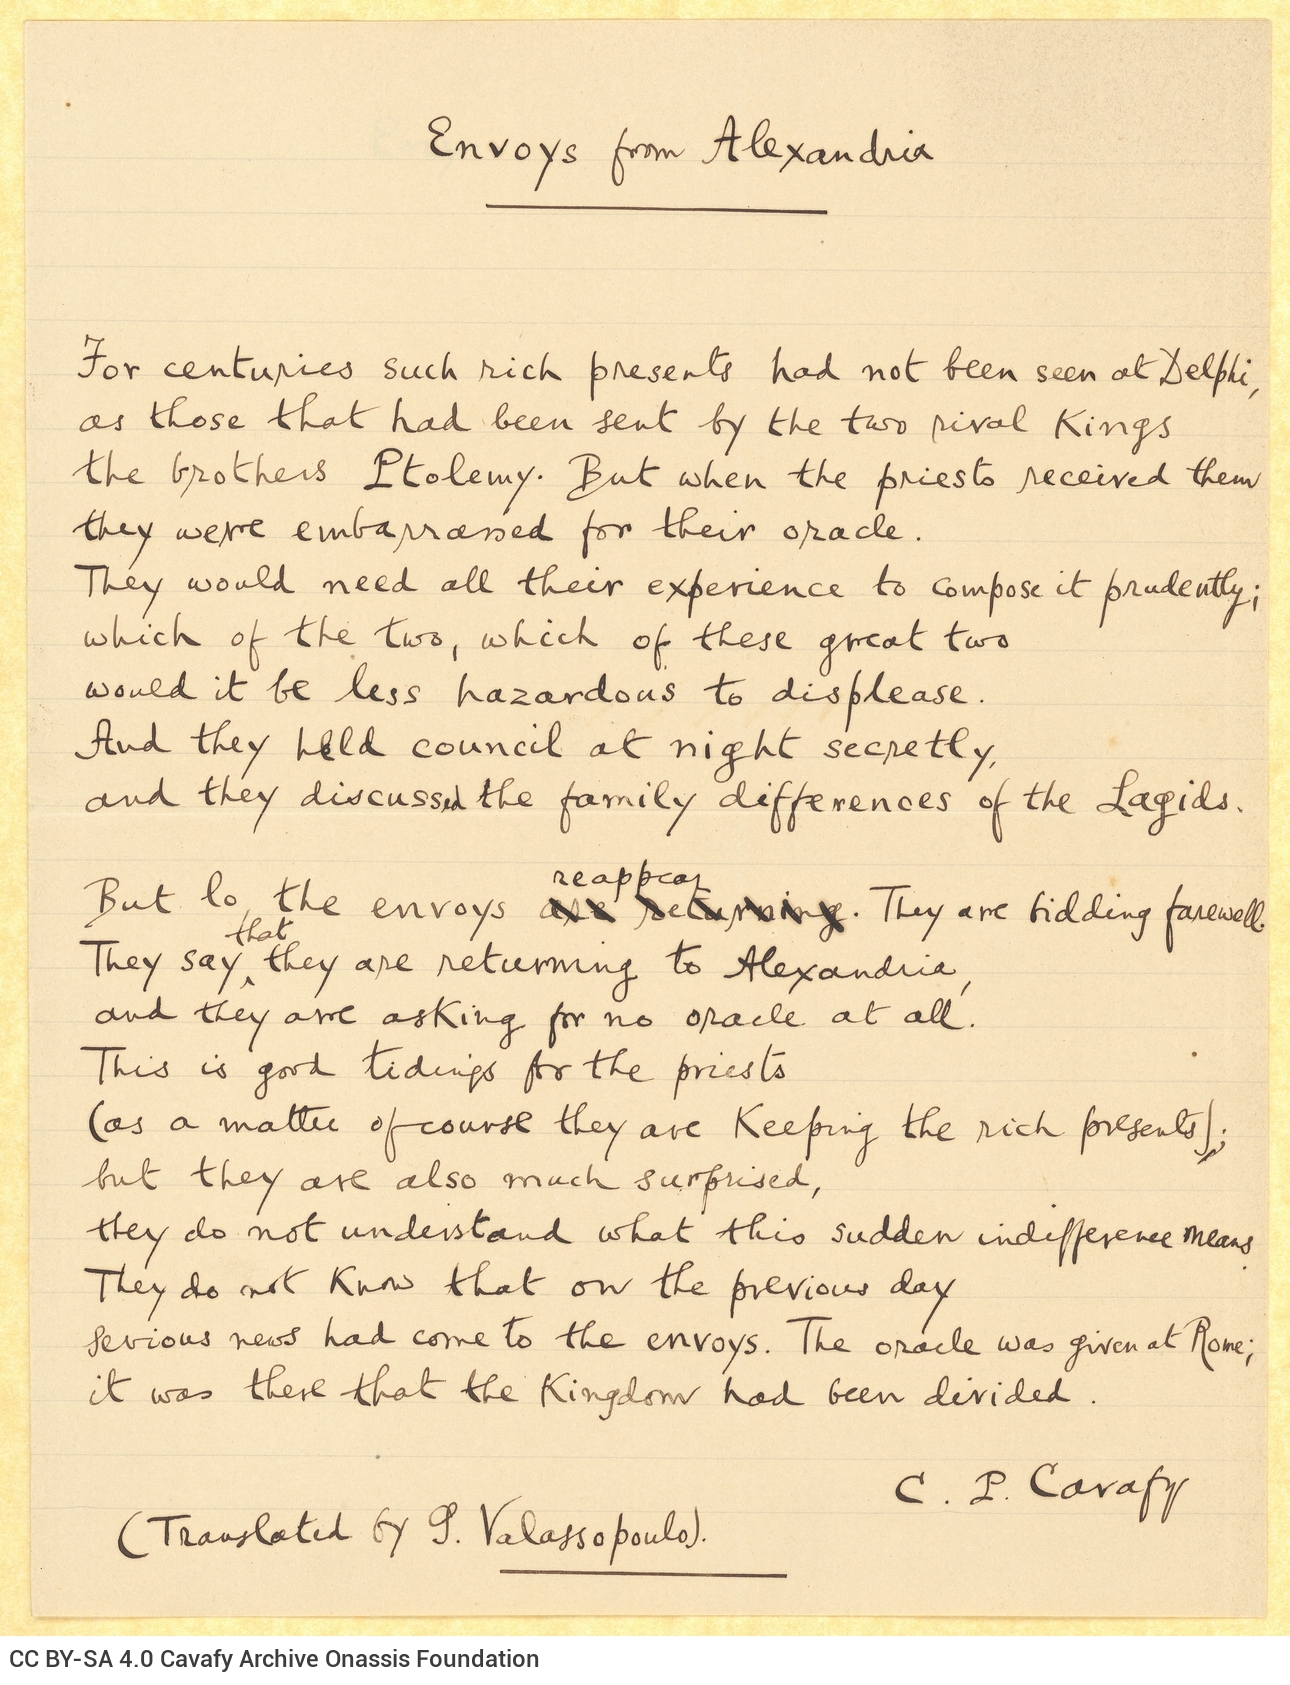 Envoys from Alexandria
For centuries such rich presents had not been seen at Delphi,
as those that had been sent by the two rival Kings
the brothers Ptolemy. But when the priests received them
they were embarrassed for their oracle.
They would need all their experience to compose it prudently;
which of the two, which of these great two
would it be less hazardous to displease.
And they held council at night secretly,
and they discussed the family differences of the Lagids.
But lo, the envoys are returning reappear. They are bidding farewell.
They say that they are returning to Alexandria,
and they are asking for no oracle at all.
This is good tidings for the priests
(as a matter of course they are Keeping the rich presents);
but they are also much surprised,
they do not understand what this sudden indifference means.
They do not Know that on the previous day
serious news had come to the envoys. The oracle was given at Rome;
it was there that the Kingdom had been divided.
C. P. Cavafy
(Translated by G. Valassopoulo).
CC BY-SA 4.0 Cavafy Archive Onassis Foundation